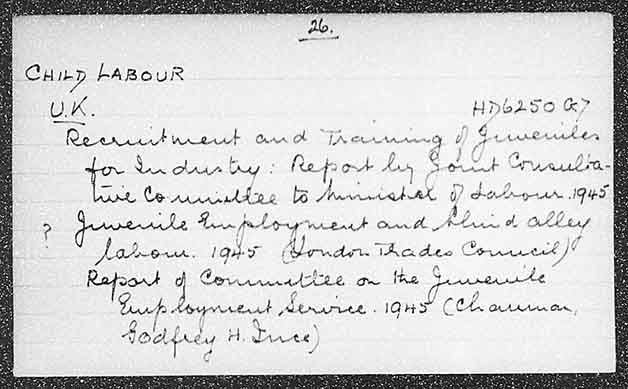 26.
CHILD LABOUR
U.K.
HD6250 G7
Recruitment and Training of Juveniles
for Industry: Report by Joint Consulta-
tive Committee to Minister of Labour. 1945
? Juvenile Employment and blind alley
labour. 1945 (London Trades Council)
Report of Committee on the Juvenile
Employment Service. 1945 (Chairman,
Godfrey H. Ince)